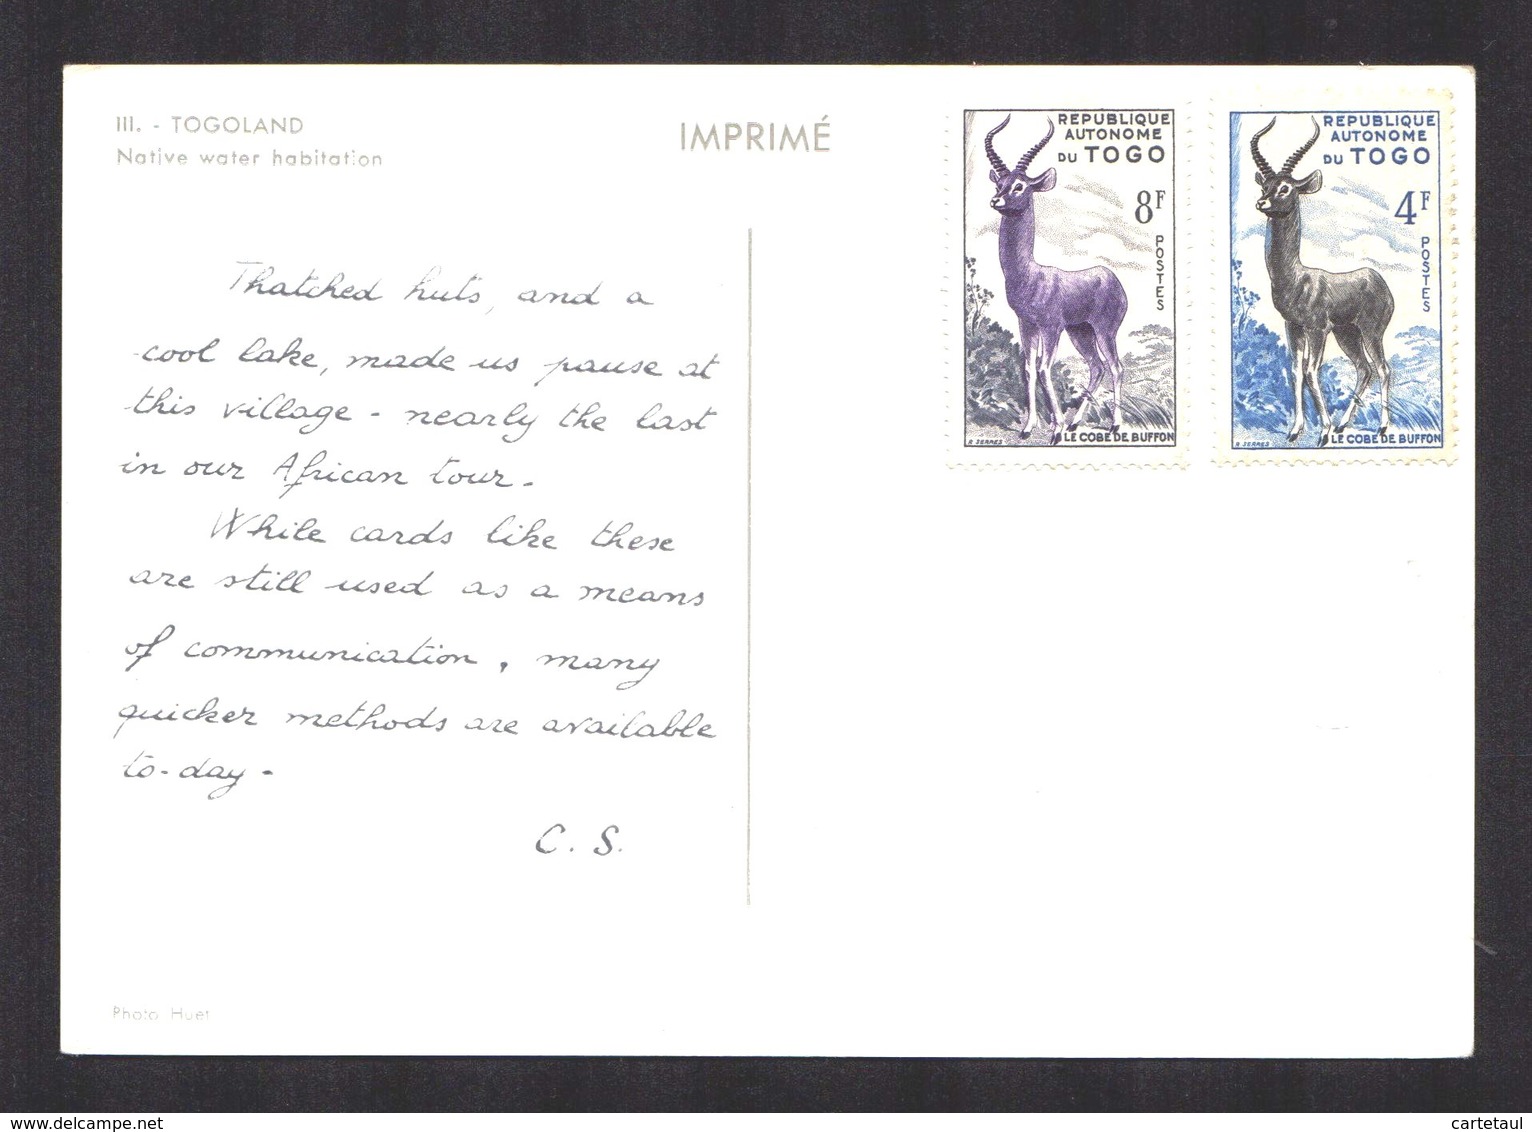 III. - TOGOLAND
Native water habitation
IMPRIMÉ
Thatched huts, and a
cool lake, made us pause at
this village - nearly the last
in our African tour.
While cards like these
are still used as a means
of communication, many
quicker methods are available
to-day -
C. S.
Photo Huet
RÉPUBLIQUE
AUTONOME
DU TOGO
8F
POSTES
R. SERRES
LE COBE DE BUFFON
RÉPUBLIQUE
AUTONOME
DU TOGO
4F
POSTES
R. SERRES
LE COBE DE BUFFON
delcampe.net
cartetaul